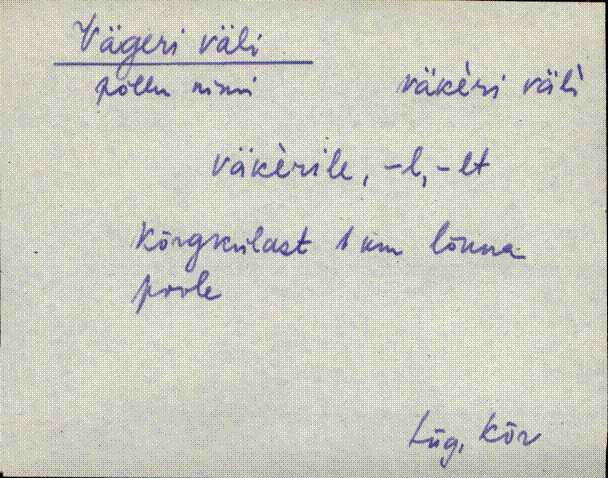 Vägeri väli
põllu nimi väkèri väli̇̀
väkèrile, -l, -lt
Kõrgkülast 1 km lõuna
poole
Lüg, Kõr